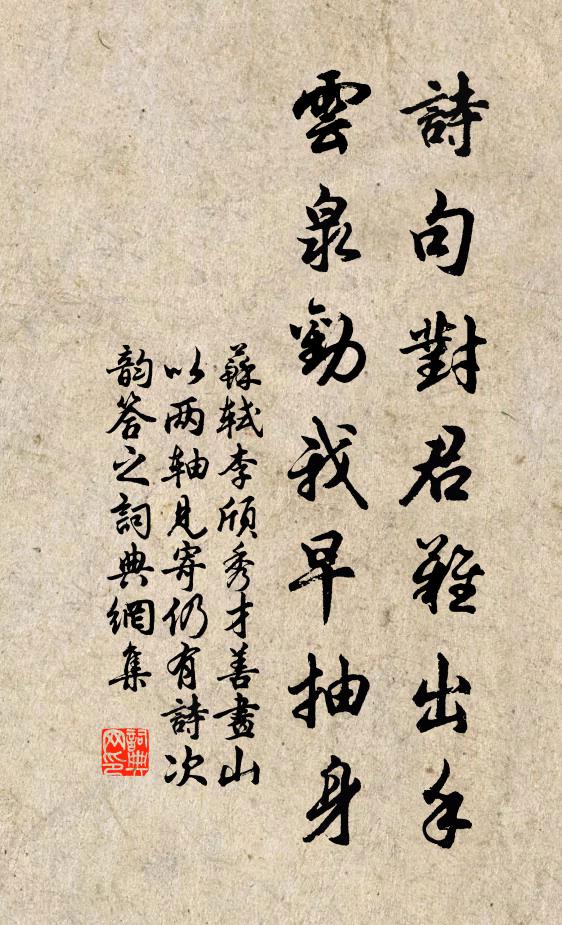 詩句對君難出手
雲泉勸我早抽身
蘇軾李頎秀才善畫山
以两軸見寄仍有詩次
韵答之詞典網集
詞典
网印